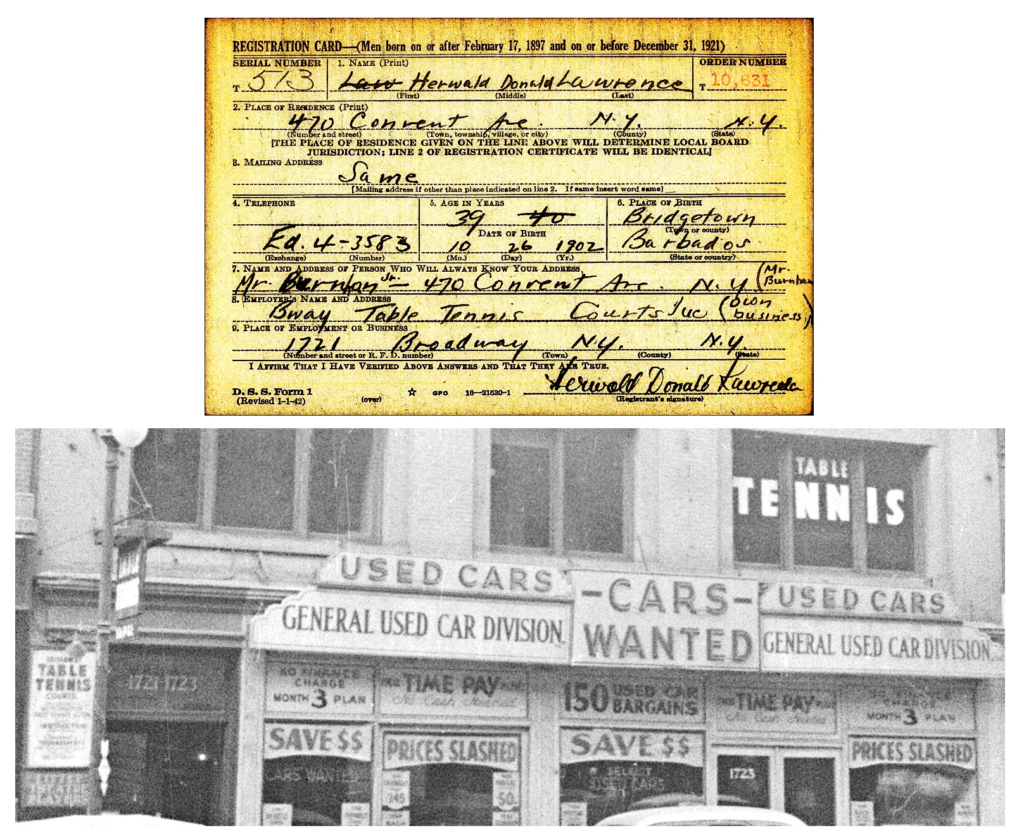 REGISTRATION CARD—(Men born on or after February 17, 1897 and on or before December 31, 1921)
SERIAL NUMBER
1. NAME (Print)
ORDER NUMBER
T 513
Law Herwald Donald Lawrence
T 10,631
(First) (Middle) (Last)
2. PLACE OF RESIDENCE (Print)
470 Convent Ave. N.Y. N.Y.
(Number and street) (Town, township, village, or city) (County) (State)
[THE PLACE OF RESIDENCE GIVEN ON THE LINE ABOVE WILL DETERMINE LOCAL BOARD
JURISDICTION; LINE 2 OF REGISTRATION CERTIFICATE WILL BE IDENTICAL]
3. MAILING ADDRESS
Same
[Mailing address if other than place indicated on line 2. If same insert word same]
4. TELEPHONE
5. AGE IN YEARS
6. PLACE OF BIRTH
39 40
Bridgetown
DATE OF BIRTH
(Town or county)
Ed. 4-3583
10 26 1902
Barbados
(Exchange) (Number)
(Mo.) (Day) (Yr.)
(State or country)
7. NAME AND ADDRESS OF PERSON WHO WILL ALWAYS KNOW YOUR ADDRESS
Mr. 470 Convent Ave. N.Y. (Mr.
8. EMPLOYER'S NAME AND ADDRESS
Bway Table Tennis Courts Inc (own business)
9. PLACE OF EMPLOYMENT OR BUSINESS
1721 Broadway N.Y. N.Y.
(Number and street or R. F. D. number) (Town) (County) (State)
I AFFIRM THAT I HAVE VERIFIED ABOVE ANSWERS AND THAT THEY ARE TRUE.
Herwald Donald Lawrence
D. S. S. Form 1
(Revised 1-1-42)
(over)
GPO 16—21630-1
(Registrant's signature)
TABLE
TENNIS
USED CARS
-CARS-
WANTED
USED CARS
GENERAL USED CAR DIVISION.
GENERAL USED CAR DIVISION
TABLE
TENNIS
COURTS
1721-1723
NO FINANCE
CHARGE
MONTH 3 PLAN
TIME PAY
150 USED CAR
BARGAINS
TIME PAY
CHARGE
MONTH 3 PLAN
SAVE $$
PRICES SLASHED
SAVE $$
PRICES SLASHED
CARS WANTED
SELECT
USED CARS
1723